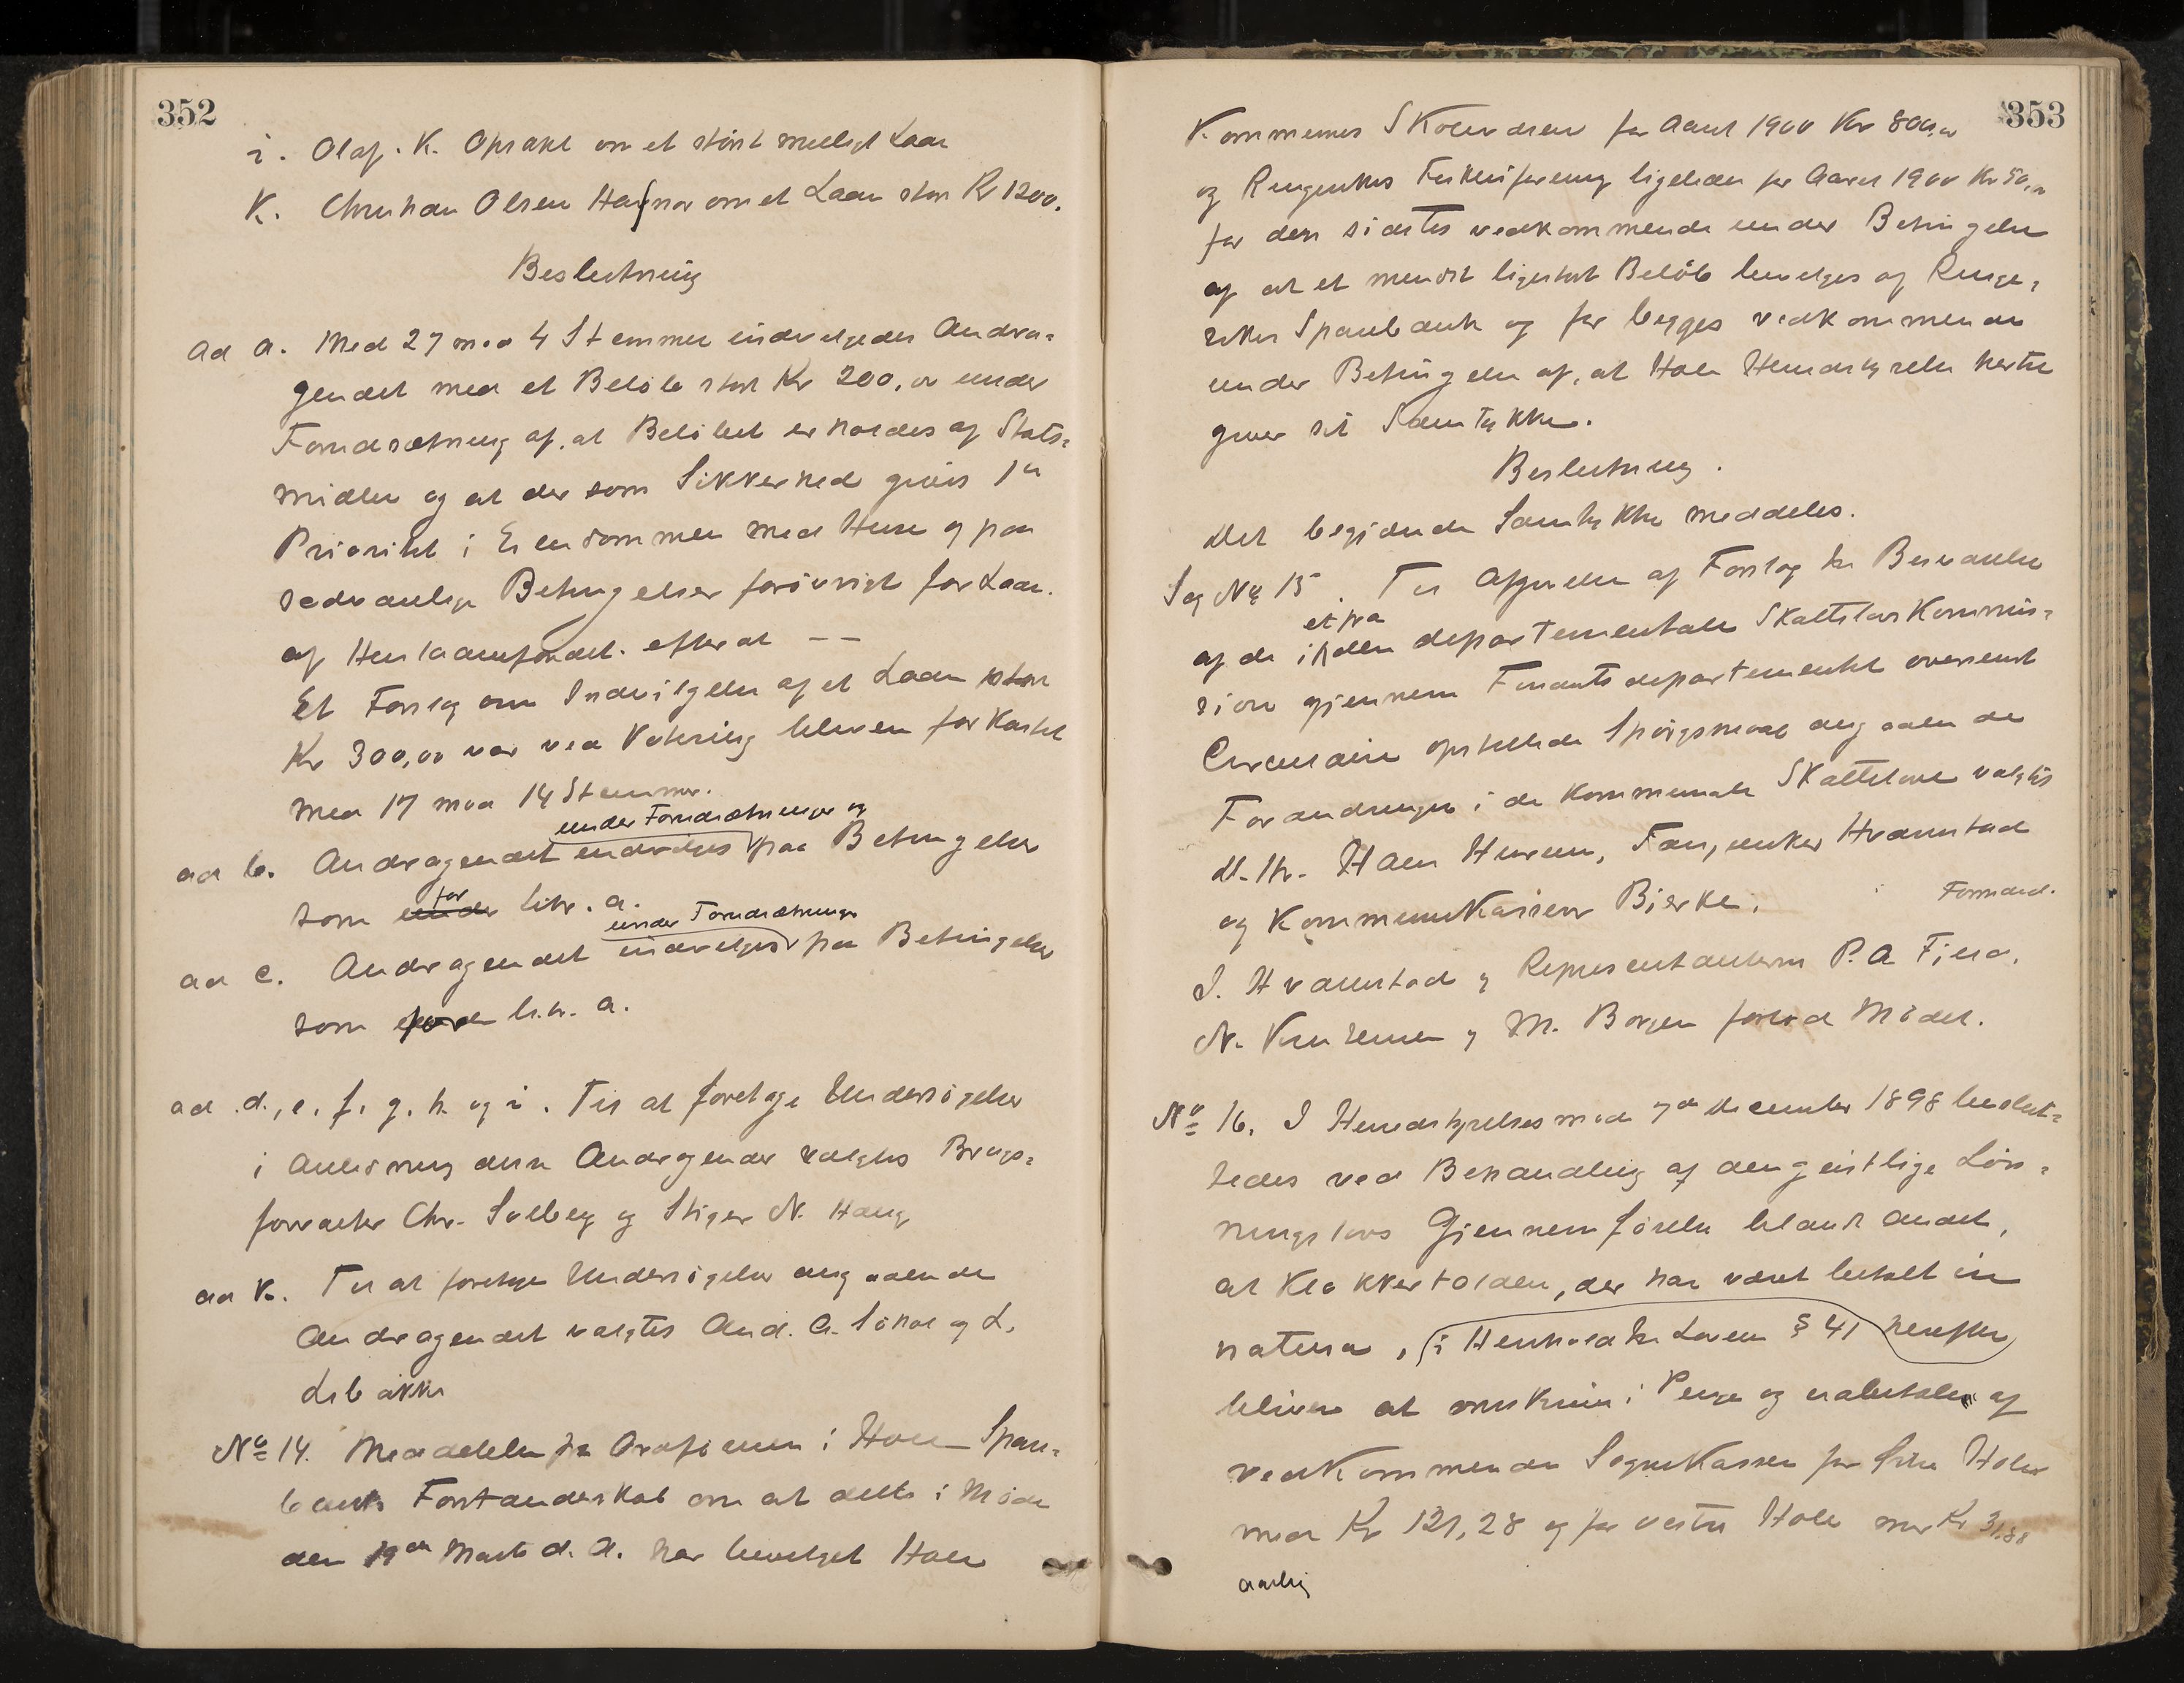 352
i. Olaf. K. Opsahl om et störst muligt Laan
K. Christian Olsen Hafnor om et Laan stor Kr 1200.
Beslutning
ad a. Med 27 mod 4 Stemmer indvilgedes Andra=
gendet med et Belöb stort Kr 200,00 under
Forudsætning af, at Belöbet erholdes af Stats=
midler og at der som Sikkerhed givis 1ste
Prioritet i Eiendommen med Huse og paa
sedvanlige Betingelser forövrigt for Laan
af Huslaanefondet. efterat — —
Et Forslag om Indvilgelse af et Laan stor
Kr 300,00 var ved Votering bleven forkastet
med 17 mod 14 Stemmer.
under Forudsætninger og
ad b. Andragendet indvilges paa Betingelser
for
som under litr. a.
under Forudsætninger
ad c. Andragendet indvilges paa Betingelser
som for litr. a.
ad d., e. f. g. h. og i. Til at foretage Undersögelser
i Anledning disse Andragender valgtes Brugs=
forvalter Chr. Solberg og Stiger N. Haug
ad K. Til at foretage Undersögelser angaaende
Andragendet valgtes And. A. Sönol og L.
Libakke
No 14. Meddelelse fra Ordföreren i Hole Spare=
banks Forstanderskab om at dette i Möde
den 19de Marts d. A. har bevilget Hole
353
Kommunes Skolevæsen for Aaret 1900 Kr 800,00
og Ringerikes Turistforening ligeledes for Aaret 1900 Kr 50,00
for den sidstes vedkommende under Betingelse
af at et mindst ligestort Belöb bevilges af Ringe=
rikes Sparebank og for begges vedkommende
under Betingelse af, at Hole Herredstyrelse hertil
giver sit Samtykke.
Beslutning.
Det begjærede Samtykke meddeles.
Sag No 15. Til Afgivelse af Forslag til Besvarelse
et fra
af de i den departementale Skattelovkommis=
sion gjennem Finantsdepartementet oversendt
Circulaire opstillede Spörgsmaal angaaende
Forandringer i de kommunale Skattelove valgtes
d'Hr. Hans Hurum, Hvamstad
og Kommunekasserer Bjerke.
Formand.
J. Hvamstad og Repræsentanterne P. A Fjeld,
N. Knutsen og M. Borgen forlod Mödet.
No 16. I Herredstyrelsesmöde 7de December 1898 beslut=
tedes ved Behandling af den geistlige Lön=
ningslovs Gjennemförelse blandt andet,
at Klokkertolden, der har været betalt in
natura, i Henhold til Lovens § 41 herefter
bliver at omskrive i Penge og udbetales af
vedkommende Sognekasser for östre Hole
med Kr 121,28 og for vestre Hole med Kr 31.88
aarlig